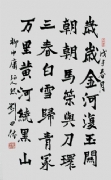 歲歲金河復玉關
朝朝馬策與刀環
三春白雪歸青冢
萬里黃河繞黑山
柳中庸征人怨